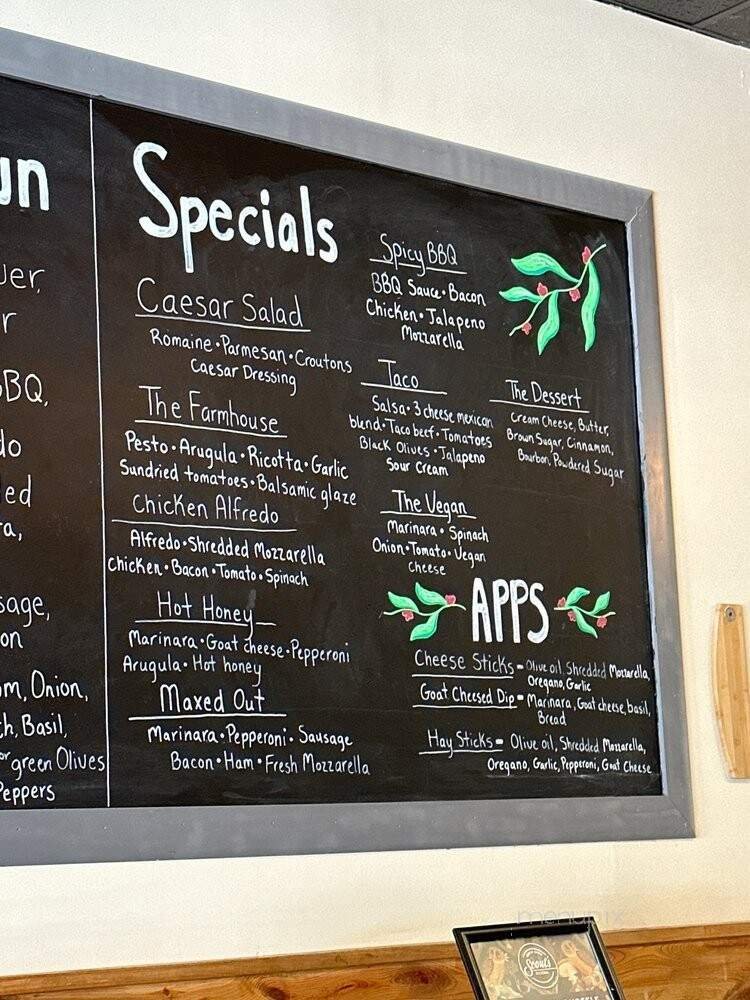 un
er,
r
BQ,
do
led
a,
sage,
on
m, Onion,
h, Basil,
or green Olives
Peppers
Specials
Caesar Salad
Romaine • Parmesan • Croutons
Caesar Dressing
The Farmhouse
Pesto • Arugula • Ricotta • Garlic
Sundried tomatoes • Balsamic glaze
Chicken Alfredo
Alfredo • Shredded Mozzarella
Chicken • Bacon • Tomato • Spinach
Hot Honey
Marinara • Goat cheese • Pepperoni
Arugula • Hot honey
Maxed Out
Marinara • Pepperoni • Sausage
Bacon • Ham • Fresh Mozzarella
Spicy BBQ
BBQ Sauce • Bacon
Chicken • Jalapeno
Mozzarella
Taco
Salsa • 3 cheese mexican
blend • Taco beef • Tomatoes
Black Olives • Jalapeno
Sour Cream
The Vegan
Marinara • Spinach
Onion • Tomato • Vegan
cheese
The Dessert
Cream Cheese, Butter,
Brown Sugar, Cinnamon,
Bourbon, Powdered Sugar
APPS
Cheese Sticks - Olive oil, Shredded Mozzarella,
Oregano, Garlic
Goat Cheesed Dip - Marinara, Goat cheese, basil,
Bread
Hay Sticks - Olive oil, Shredded Mozzarella,
Oregano, Garlic, Pepperoni, Goat Cheese
menupix